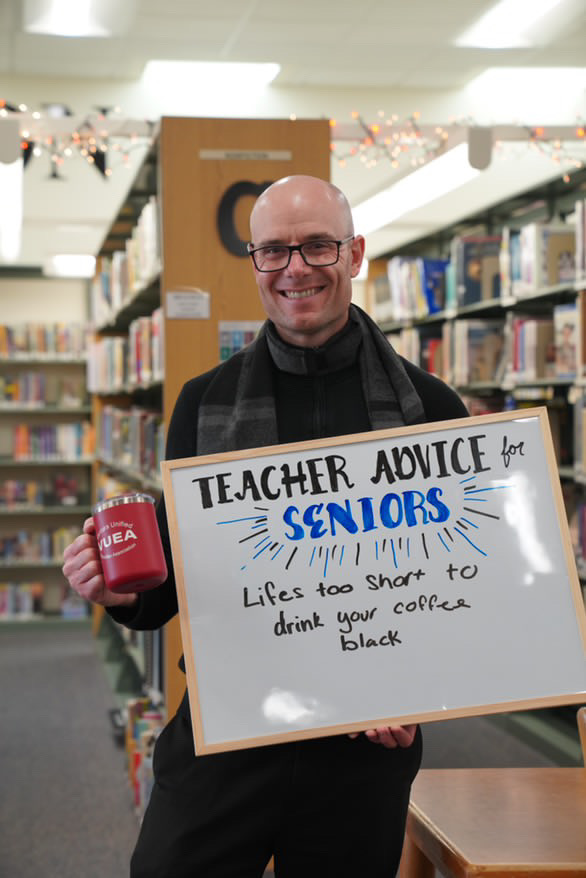 NONFICTION
TEACHER ADVICE for
SENIORS
Lifes too short to
drink your coffee
black
Unified
VUEA
Association